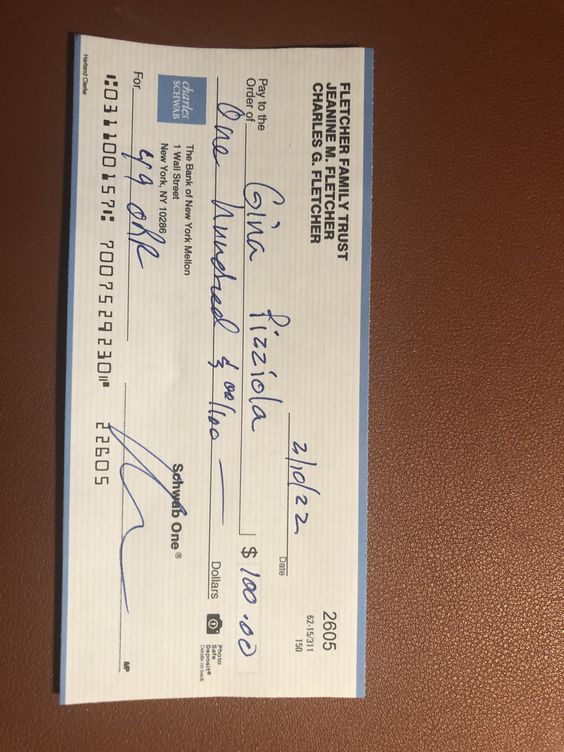 FLETCHER FAMILY TRUST
JEANINE M. FLETCHER
CHARLES G. FLETCHER
2605
62-15/311
150
2/10/22
Date
Pay to the
Order of Gina Pizziola $ 100.00
One hundred & 00/100 Dollars
Photo
Safe
Deposit®
Details on back
charles
SCHWAB
The Bank of New York Mellon
1 Wall Street
New York, NY 10286
Schwab One®
For 49
MP
⑆031100157⑆ 7007529230⑈ 22605
Harland Clarke